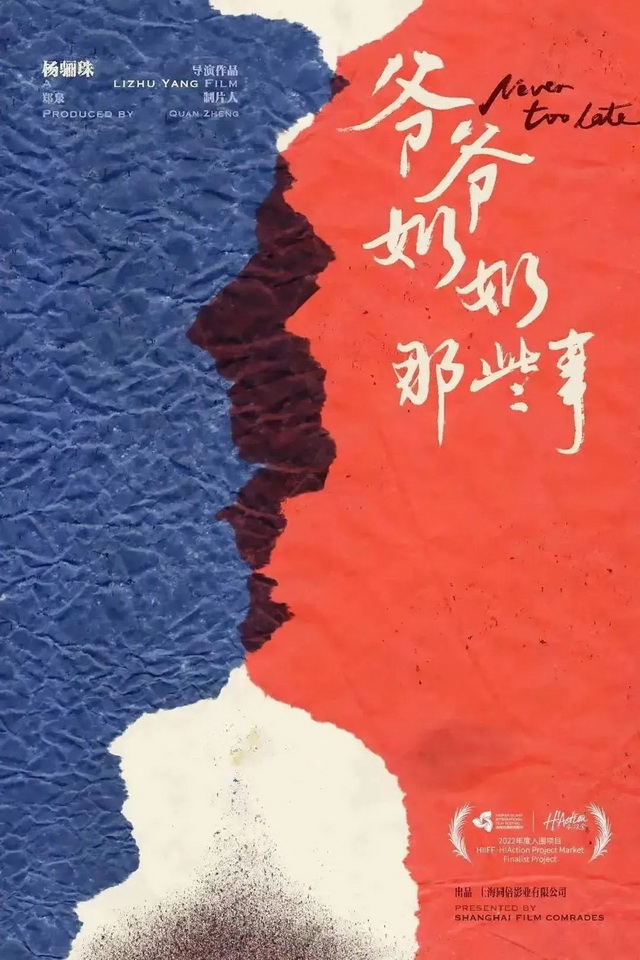 杨骊珠 导演作品
A LIZHU YANG FILM
郑泉 制片人
PRODUCED BY QUAN ZHENG
Never
too late
爷爷
奶奶
那些事
HAINAN ISLAND
INTERNATIONAL
FILM FESTIVAL
HIAction
2022年度入围项目
HIIFF·H!Action Project Market
Finalist Project
出品 上海同倍影业有限公司
PRESENTED BY
SHANGHAI FILM COMRADES